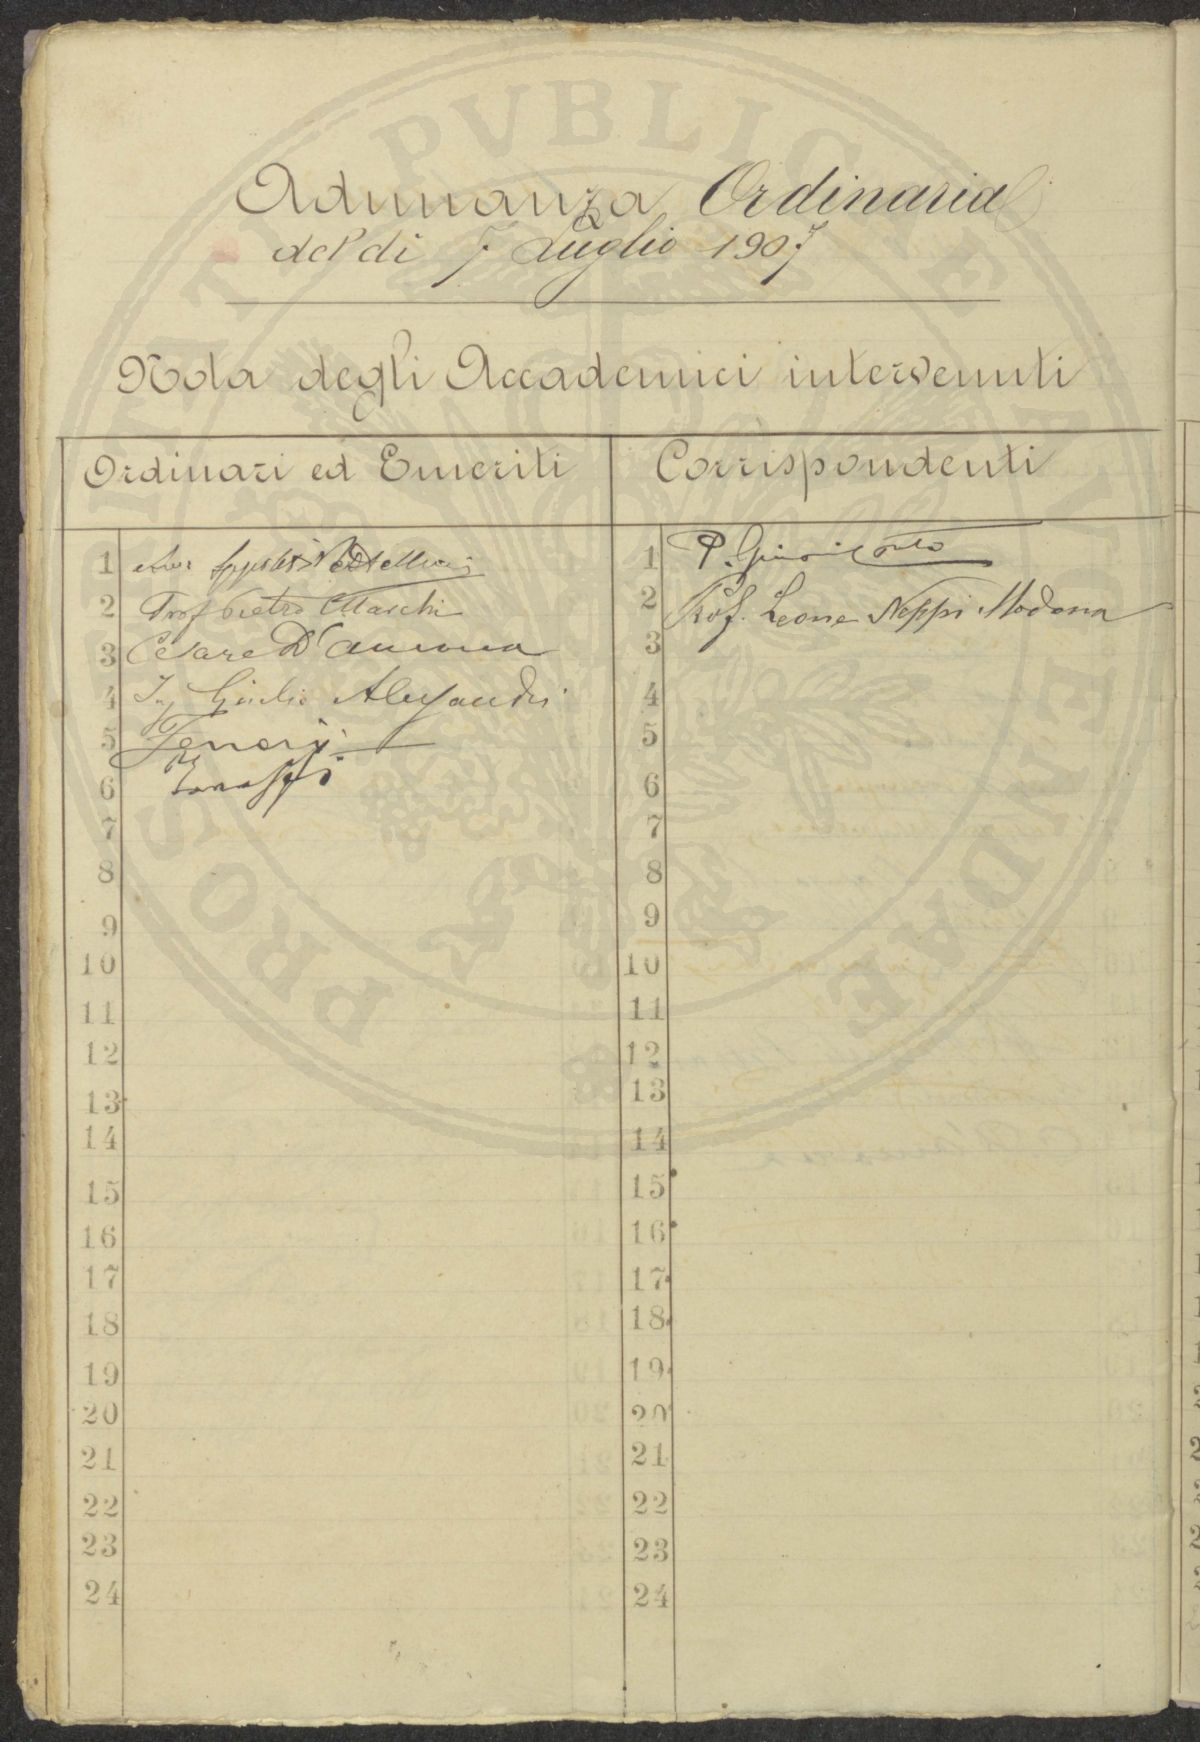 PROSPERITATI PUBLICAE AUGENDAE
Adunanza Ordinaria
del dì 7 Luglio 1907
Nota degli Accademici intervenuti
Ordinari ed Emeriti
1
2 Prof Pietro Marchi
3 Cesare D'Ancona
4 Ing Giulio Alessandri
5
6
7
8
9
10
11
12
13
14
15
16
17
18
19
20
21
22
23
24
Corrispondenti
1 P.
2 Prof. Leone Neppi Modona
3
4
5
6
7
8
9
10
11
12
13
14
15
16
17
18
19
20
21
22
23
24